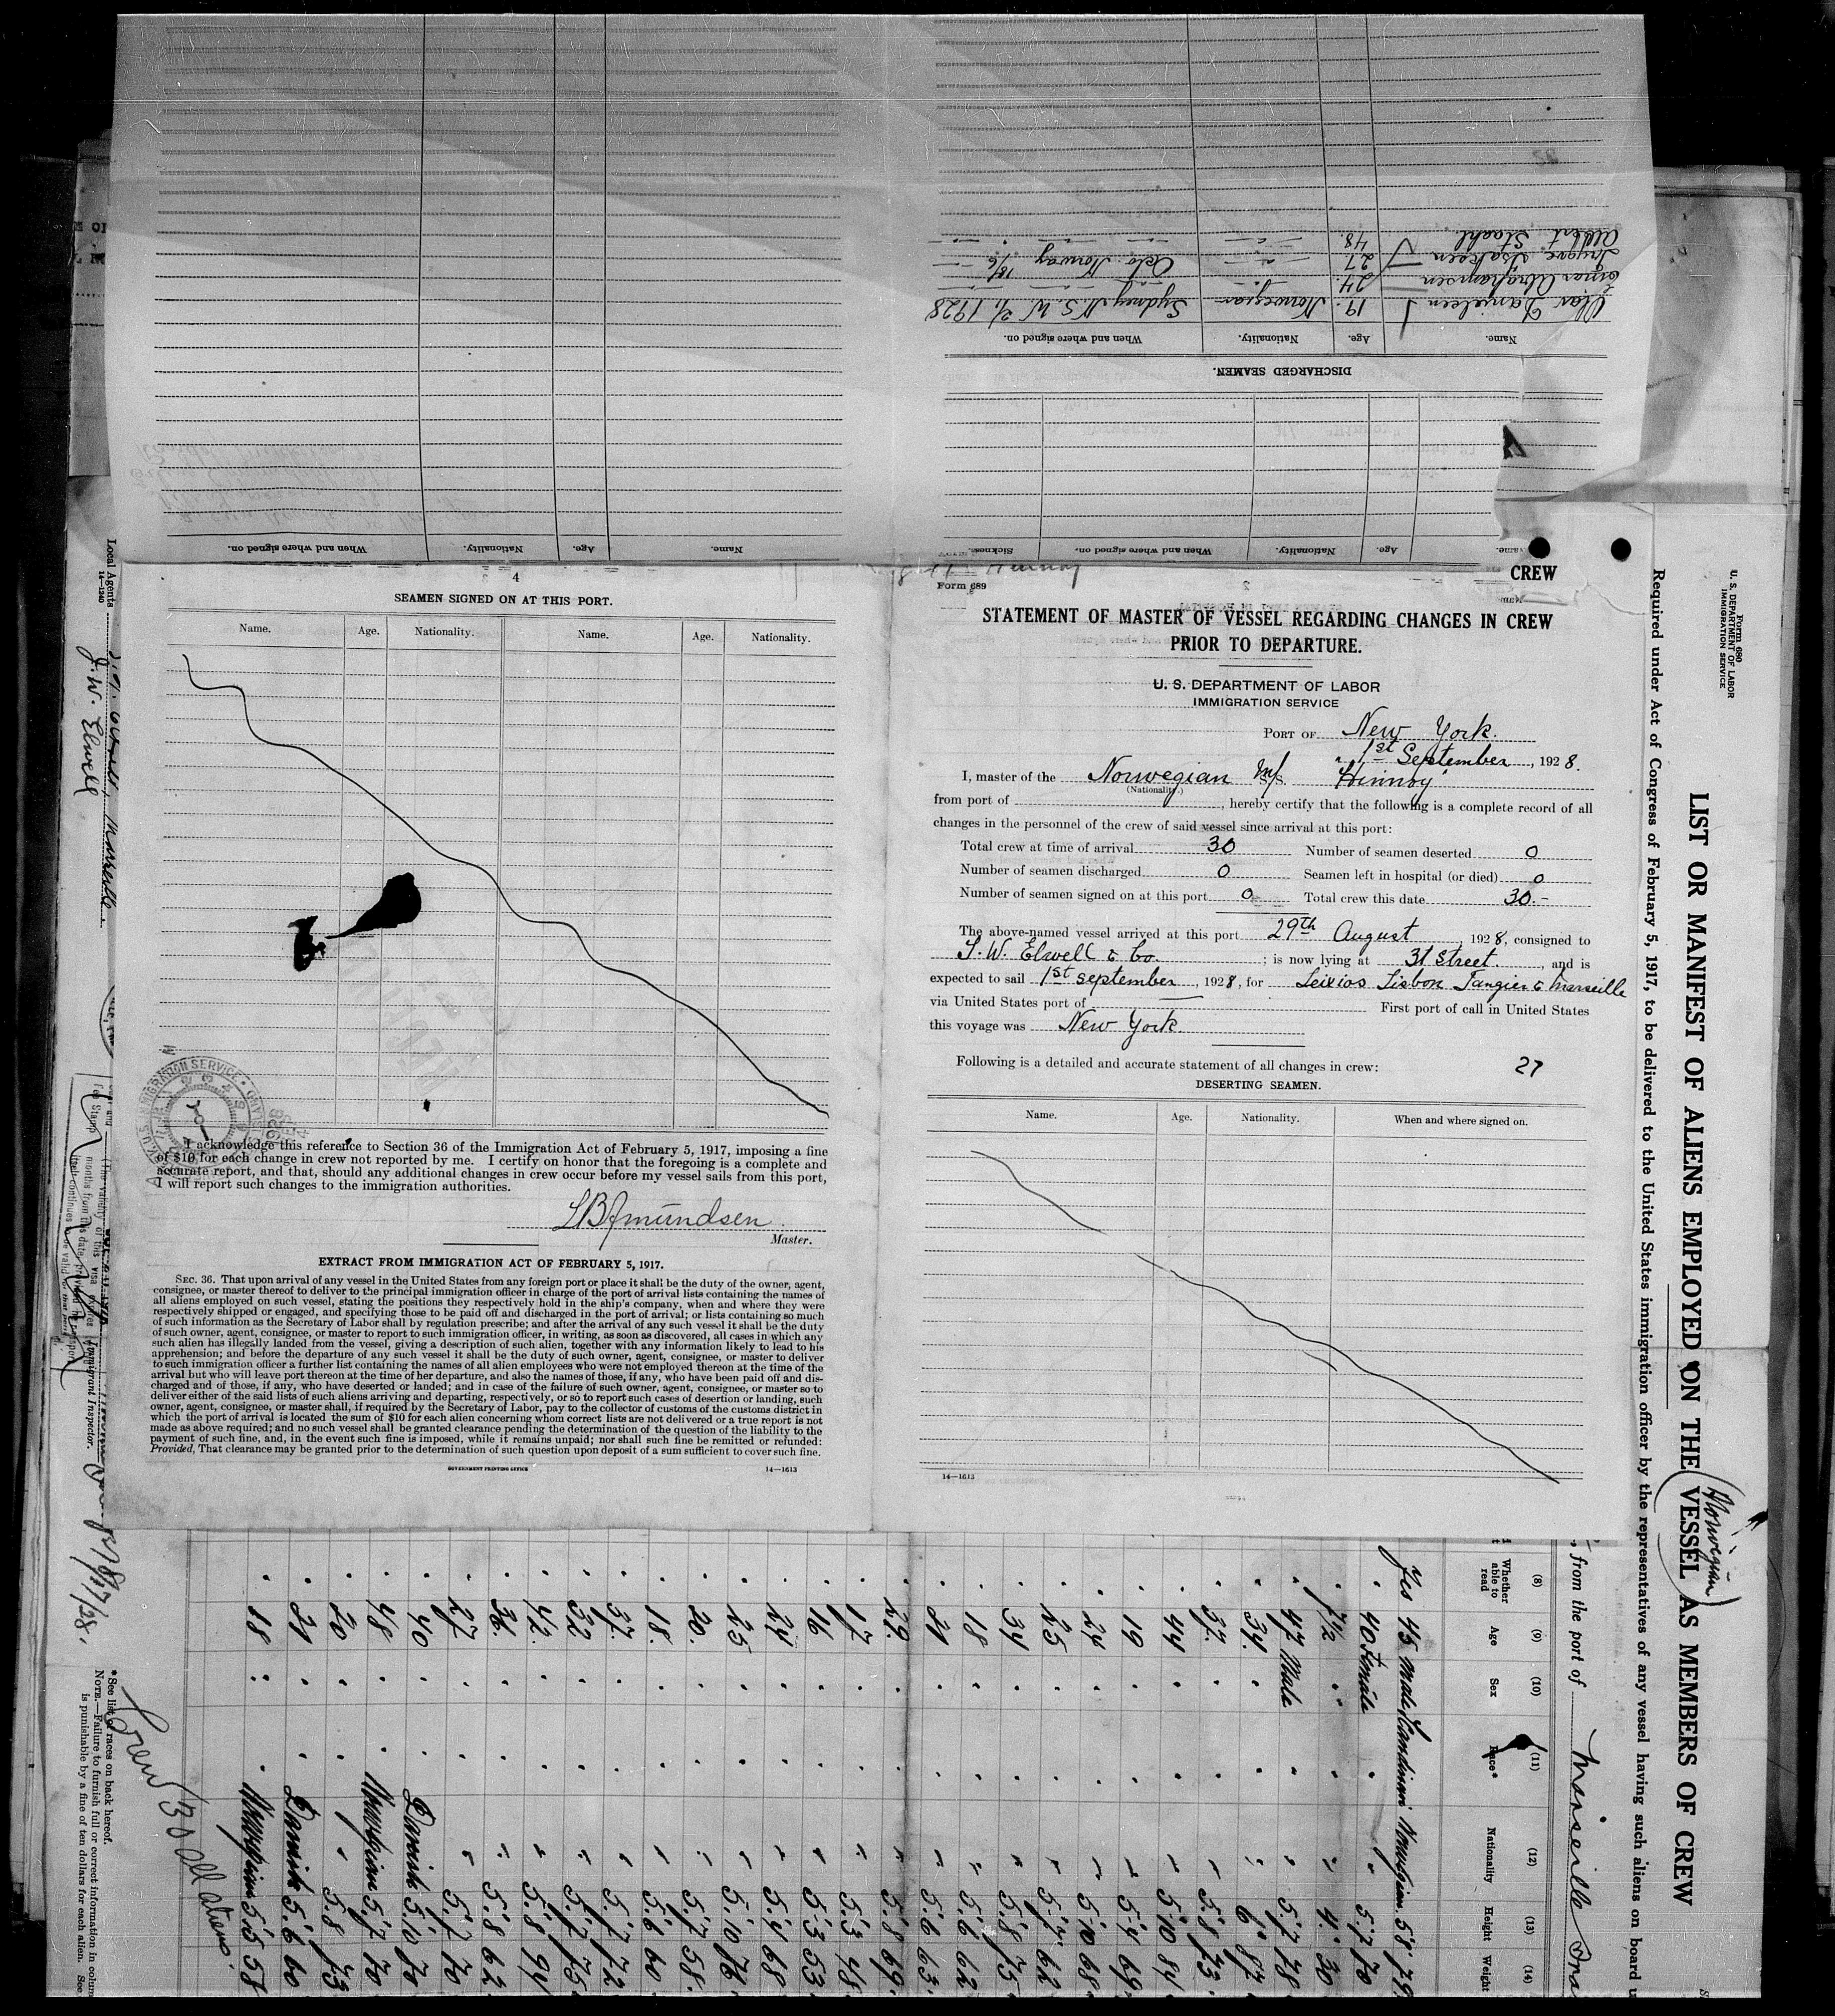 When and where signed on.
Nationality.
Age.
Name.
Olav Danielsen 19. Norwegian Sydney N.S.W. 2/1 1928
Einar Abrahamsen 24.
Trygve Isaksen 27 Oslo Norway 18/6
Albert Staehl. 48.
Name. Age. Nationality. When and where signed on.
DISCHARGED SEAMEN.
Name. Age. Nationality. When and where signed on. Sickness.
4
SEAMEN SIGNED ON AT THIS PORT.
Name. Age. Nationality. Name. Age. Nationality.
I acknowledge this reference to Section 36 of the Immigration Act of February 5, 1917, imposing a fine
of $10 for each change in crew not reported by me. I certify on honor that the foregoing is a complete and
accurate report, and that, should any additional changes in crew occur before my vessel sails from this port,
I will report such changes to the immigration authorities.
Amundsen.
Master.
EXTRACT FROM IMMIGRATION ACT OF FEBRUARY 5, 1917.
SEC. 36. That upon arrival of any vessel in the United States from any foreign port or place it shall be the duty of the owner, agent,
consignee, or master thereof to deliver to the principal immigration officer in charge of the port of arrival lists containing the names of
all aliens employed on such vessel, stating the positions they respectively hold in the ship's company, when and where they were
respectively shipped or engaged, and specifying those to be paid off and discharged in the port of arrival; or lists containing so much
of such information as the Secretary of Labor shall by regulation prescribe; and after the arrival of any such vessel it shall be the duty
of such owner, agent, consignee, or master to report to such immigration officer, in writing, as soon as discovered, all cases in which any
such alien has illegally landed from the vessel, giving a description of such alien, together with any information likely to lead to his
apprehension; and before the departure of any such vessel it shall be the duty of such owner, agent, consignee, or master to deliver
to such immigration officer a further list containing the names of all alien employees who were not employed thereon at the time of the
arrival but who will leave port thereon at the time of her departure, and also the names of those, if any, who have been paid off and dis-
charged and of those, if any, who have deserted or landed; and in case of the failure of such owner, agent, consignee, or master so to
deliver either of the said lists of such aliens arriving and departing, respectively, or so to report such cases of desertion or landing, such
owner, agent, consignee, or master shall, if required by the Secretary of Labor, pay to the collector of customs of the customs district in
which the port of arrival is located the sum of $10 for each alien concerning whom correct lists are not delivered or a true report is not
made as above required; and no such vessel shall be granted clearance pending the determination of the question of the liability to the
payment of such fine, and, in the event such fine is imposed, while it remains unpaid; nor shall such fine be remitted or refunded:
Provided, That clearance may be granted prior to the determination of such question upon deposit of a sum sufficient to cover such fine.
GOVERNMENT PRINTING OFFICE 14—1613
Form 689
CREW
STATEMENT OF MASTER OF VESSEL REGARDING CHANGES IN CREW
PRIOR TO DEPARTURE.
U. S. DEPARTMENT OF LABOR
IMMIGRATION SERVICE
PORT OF New York.
1st September, 1928.
I, master of the Norwegian M/S. "Hinnoy"
(Nationality.)
from port of , hereby certify that the following is a complete record of all
changes in the personnel of the crew of said vessel since arrival at this port:
Total crew at time of arrival 30 Number of seamen deserted 0
Number of seamen discharged 0 Seamen left in hospital (or died) 0
Number of seamen signed on at this port 0 Total crew this date 30.-
The above-named vessel arrived at this port 29th August, 1928, consigned to
J. W. Elwell & Co. ; is now lying at 31 Street, and is
expected to sail 1st september, 1928, for Leixios Lisbon Tangier & Marseille
via United States port of First port of call in United States
this voyage was New York
Following is a detailed and accurate statement of all changes in crew: 27
DESERTING SEAMEN.
Name. Age. Nationality. When and where signed on.
14—1613
Form 680
U. S. DEPARTMENT OF LABOR
IMMIGRATION SERVICE
LIST OR MANIFEST OF ALIENS EMPLOYED ON THE VESSEL AS MEMBERS OF CREW
(Norwegian)
Required under Act of Congress of February 5, 1917, to be delivered to the United States immigration officer by the representatives of any vessel having such aliens on board
, from the port of Marseille
(8) (9) (10) (11) (12) (13) (14)
Whether able to read Age Sex Race* Nationality Height Weight
Yes 45 Male Scandinavi Norwegian 5'8 79
40 Female 5'7 70
7½ 4. 30
47 Male 5'7 78
34. 6" 87
37. 5.8 73.
44 5.10 84
19 5.4 69
24 5.10 68
25 5.7 62
34 5.8 75
18 5.6 62
21 5.6 63.
29. 5.8 69
17 5.3 48
16 5.3 53
24 5.4 68
25 5.10 76
20. 5.7 58.
18. 5.6 60
37. 5.7 72
52 5.7 75
42. 5.8 94
36. 5.8 62
27 5.7 70
40 Danish 5.10 70
48 Norwegian 5.7 70
20 5.8 73
21 Danish 5.6 60
18 Norwegian 5.5 58
Crew 30 all aliens.
*See list of races on back hereof.
NOTE.—Failure to furnish full or correct information in colum
is punishable by a fine of ten dollars for each alien. See
Local Agents
14—1240
J. W. Elwell
Immigrant Inspector.